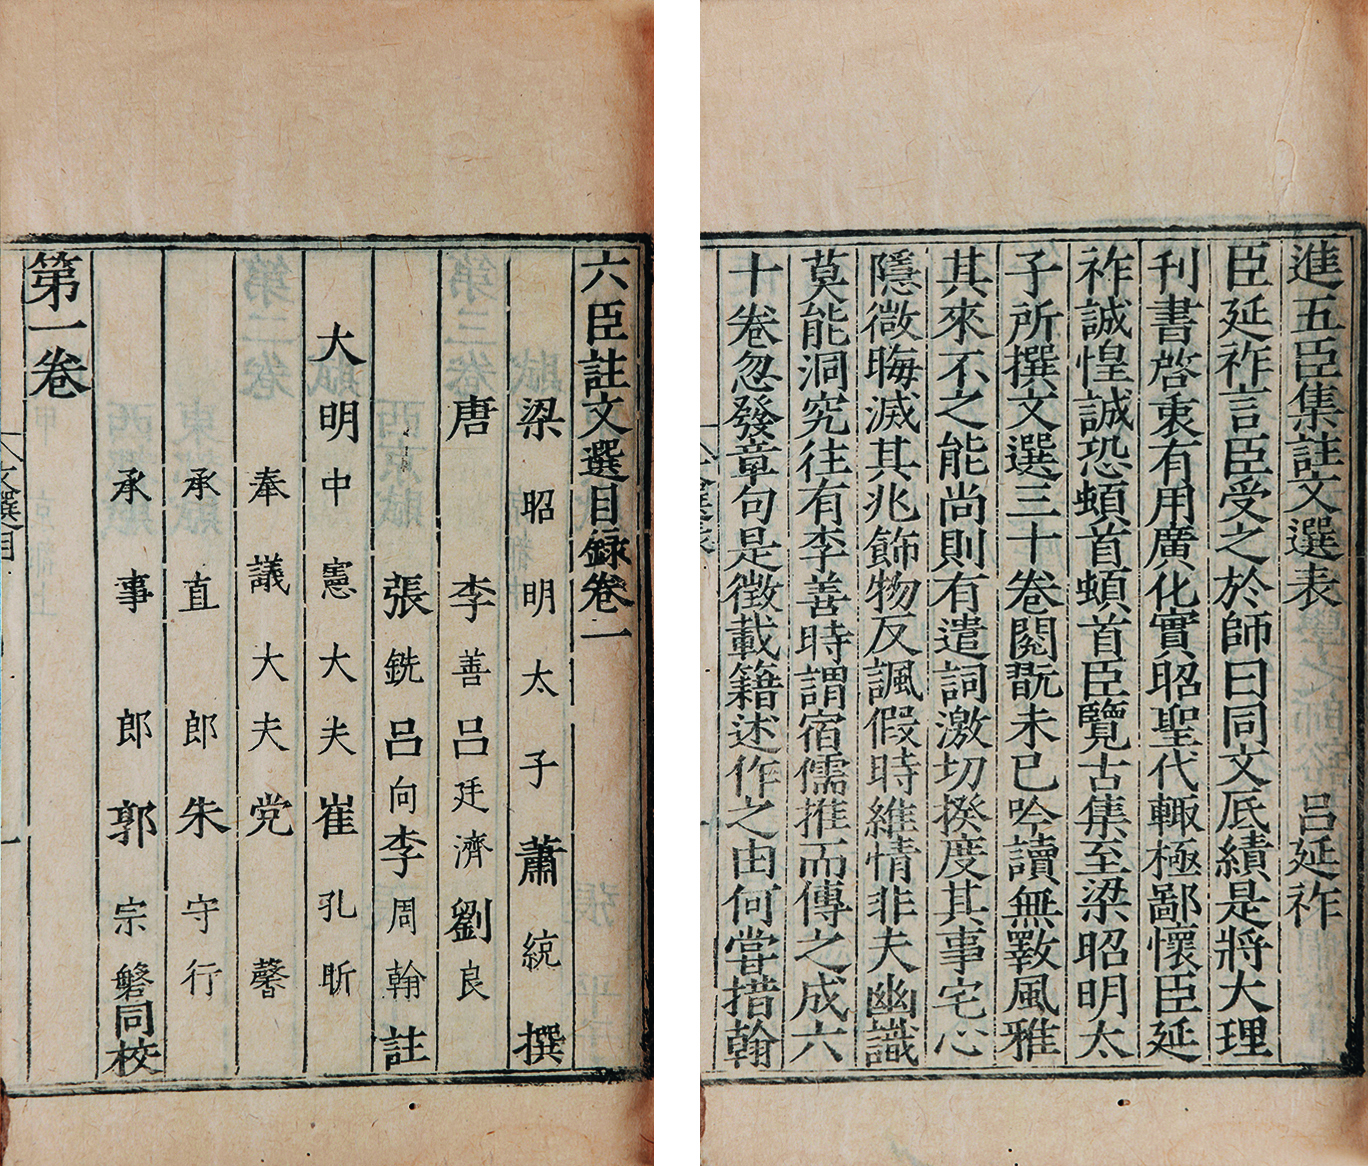 進五臣集註文選表 呂延祚
臣延祚言臣受之於師曰同文厎績是將大理
刊書啓衷有用廣化實昭聖代輙極鄙懷臣延
祚誠惶誠恐頓首頓首臣覽古集至梁昭明太
子所撰文選三十卷閱翫未已吟讀無斁風雅
其來不之能尚則有遣詞激切揆度其事宅心
隱微晦滅其兆飾物反諷假時維情非夫幽識
莫能洞究往有李善時謂宿儒推而傳之成六
十卷忽發章句是徵載籍述作之由何嘗措翰
六臣註文選目錄卷一
梁昭明太子蕭統撰
唐李善呂延濟劉良
張銑呂向李周翰註
大明中憲大夫崔孔昕
奉議大夫党馨
承直郎朱守行
承事郎郭宗磐同校
第一卷